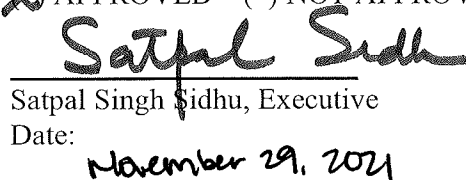 APPROVED ( ) NOT APPROV
Satpal Sidhu
Satpal Singh Sidhu, Executive
Date:
November 29, 2021